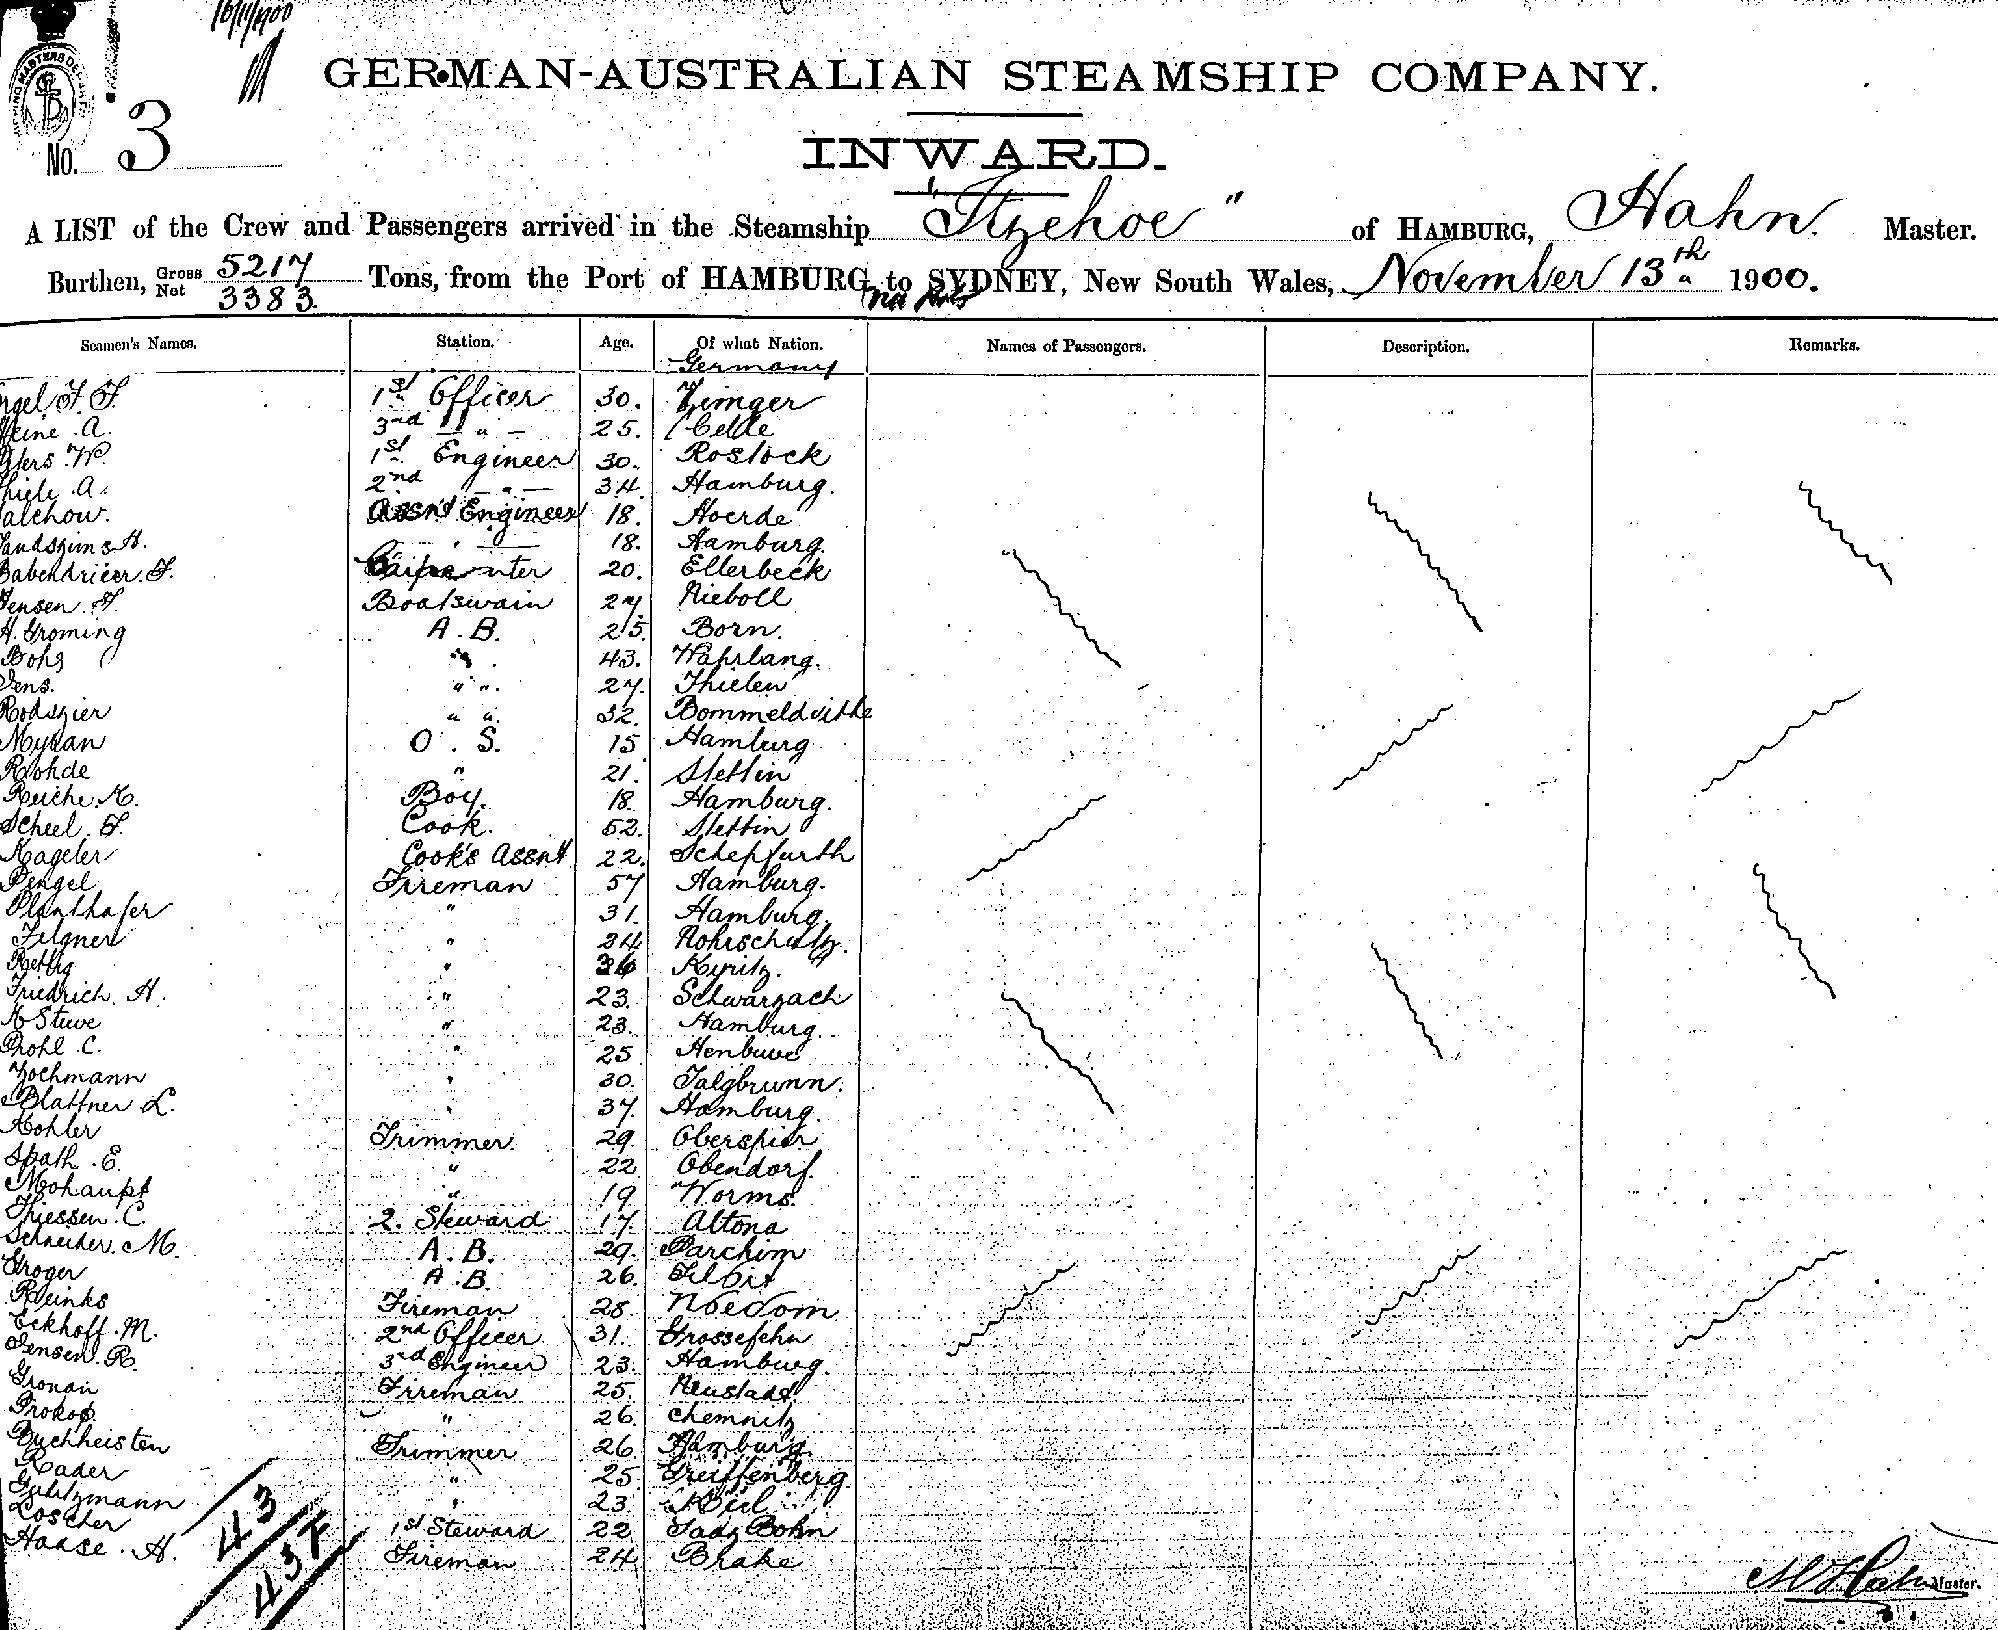 16/11/1900
GERMAN-AUSTRALIAN STEAMSHIP COMPANY.
No. 3
INWARD.
A LIST of the Crew and Passengers arrived in the Steamship "Itzehoe" of HAMBURG, Hahn. Master.
Burthen, Gross 5217 Net 3383 Tons, from the Port of HAMBURG to SYDNEY, New South Wales, November 13th 1900.
via ports
Seamen's Names. Station. Age. Of what Nation. Names of Passengers. Description. Remarks.
Germany
1st Officer 30.
Heine . A. 3rd — " — 25. Celle
W. 1st Engineer 30. Rostock
Thiele . A. 2nd — " — 34. Hamburg.
Assnt Engineer 18. Hoerde
H. " — 18. Hamburg.
Babendrieer. F. Carpenter 20. Ellerbeck
Jensen . F. Boatswain 27. Nieboll
H. Groming A. B. 25. Born.
Bohs " . 43. Wahrlang.
Jens. " ". 27. Thielen
Rodszier " ". 32.
O . S. 15 Hamburg
Rohde " 21. Stettin
Reiche. K. Boy. 18. Hamburg.
Scheel . F. Cook. 52. Stettin
Kageler Cook's Assnt 22. Schepfurth
Pengel Fireman 57 Hamburg.
Planthafer " 31. Hamburg.
Filgner " 24 Rohrschutz.
Rettig " Kyritz.
Friedrich. H. " 23. Schwarzach
H Stuve " 23. Hamburg.
Prohl . C. " 25 Henbuve
Zochmann " 30. Salgbrunn.
Blattner L. " 37. Hamburg.
Kohler Trimmer. 29. Oberspier
Spath . E. " 22. Obendorf.
Mohaupt " 19. Worms.
Thiessen. C. 2. Steward 17. Altona
Schneider. M. A. B. 29. Parchim
Groger A. B. 26.
Reinks Fireman 28.
Eckhoff. M. 2nd Officer 31. Grossefehn
Jensen. R. 3rd Engineer 23. Hamburg.
Gronau Fireman 25. Neustadt
Prokop " 26. Chemnitz
Buchheisten Trimmer 26. Hamburg.
Kader " 25. Greiffenberg.
Gultzmann " 23. Kiel
Loscher 1st Steward 22
Haase . H. Fireman 24. Brake
43
43 F
M Hahn Master.